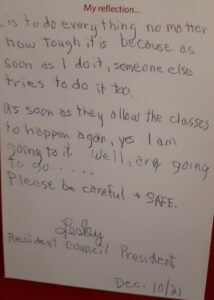 My reflection...
..is to do everything no matter
how tough it is because as
soon as I do it, someone else
tries to do it too.
as soon as they allow the classes
to happen again, yes I am
going to it. Well, are going
to go.....
Please be careful + SAFE.
Resident Council President
Dec. 10/21